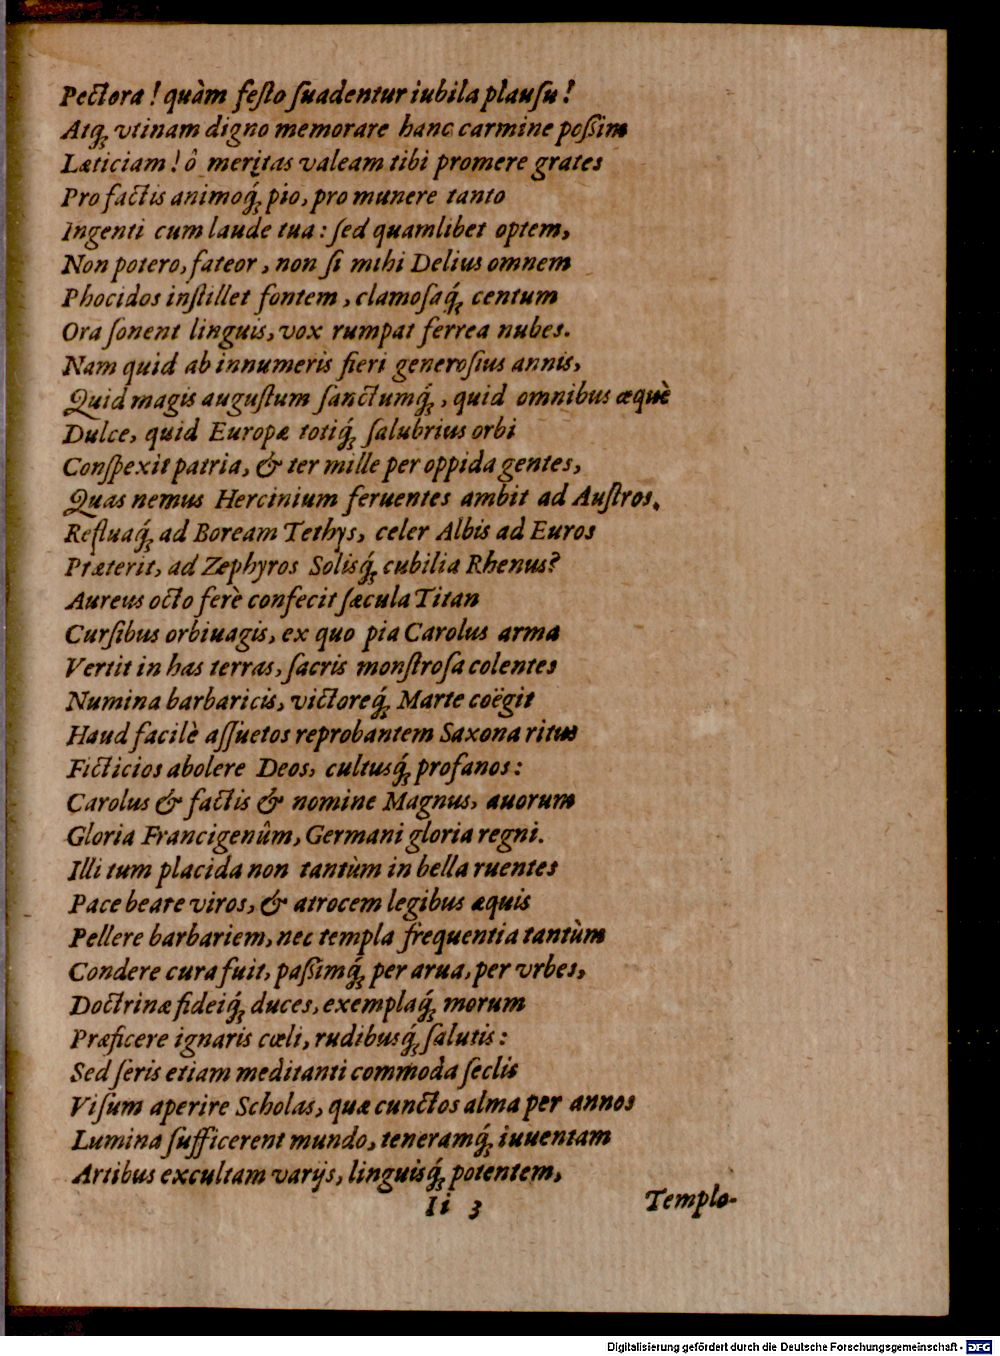 Pectora ! quàm festo suadentur iubila plausu !
Atq́; vtinam digno memorare hanc carmine poßim
Læticiam ! ô meritas valeam tibi promere grates
Pro factis animoq́; pio, pro munere tanto
Ingenti cum laude tua : sed quamlibet optem,
Non potero, fateor , non si mihi Delius omnem
Phocidos instillet fontem , clamosaq́; centum
Ora sonent linguis, vox rumpat ferrea nubes.
Nam quid ab innumeris fieri generosius annis,
Quid magis augustum sanctumq́; , quid omnibus æquè
Dulce, quid Europæ totiq́; salubrius orbi
Conspexit patria, & ter mille per oppida gentes,
Quas nemus Hercinium feruentes ambit ad Austros,
Refluaq́; ad Boream Tethys, celer Albis ad Euros
Præterit, ad Zephyros Solisq́; cubilia Rhenus?
Aureus octo ferè confecit sæcula Titan
Cursibus orbiuagis, ex quo pia Carolus arma
Vertit in has terras, sacris monstrosa colentes
Numina barbaricis, victoreq́; Marte coëgit
Haud facilè assuetos reprobantem Saxona ritus
Ficticios abolere Deos, cultusq́; profanos :
Carolus & factis & nomine Magnus, auorum
Gloria Francigenûm, Germani gloria regni.
Illi tum placida non tantùm in bella ruentes
Pace beare viros, & atrocem legibus æquis
Pellere barbariem, nec templa frequentia tantùm
Condere cura fuit, paßimq́; per arua, per vrbes,
Doctrinæ fideiq́; duces, exemplaq́; morum
Præficere ignaris cœli, rudibusq́; salutis :
Sed seris etiam meditanti commoda seclis
Visum aperire Scholas, quæ cunctos alma per annos
Lumina sufficerent mundo, teneramq́; iuuentam
Artibus excultam varijs, linguisq́; potentem,
Ii 3 Templo-
Digitalisierung gefördert durch die Deutsche Forschungsgemeinschaft - DFG